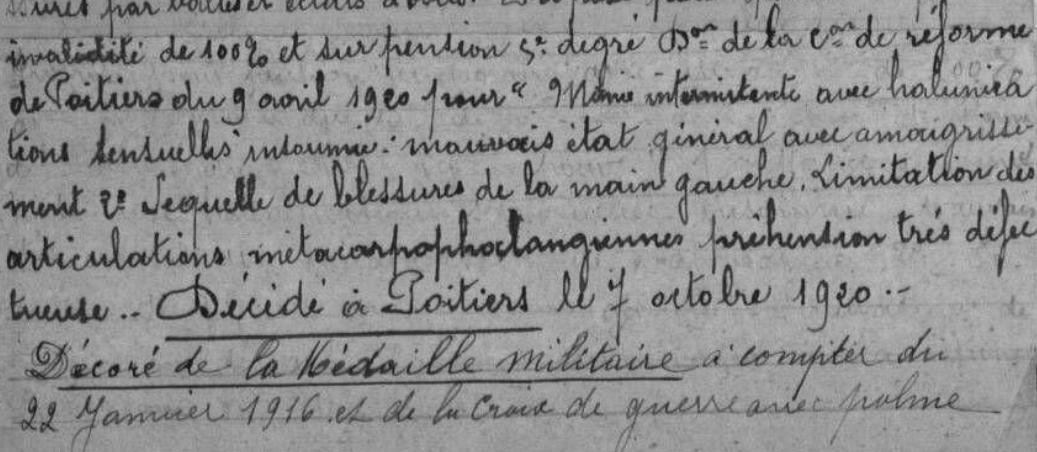 par
invalidité de 100% et sur pension 5e degré Don de la Con de réforme
de Poitiers du 9 avril 1920 pour " Manie intermitente avec halunica
tions sensuelles insomnie. mauvais état général avec amaigrisse-
ment 2e Sequelle de blessures de la main gauche. Limitation des
articulations métacarpophalangiennes préhension très défec
tueuse.. Décidé à Poitiers le 7 octobre 1920.-
Décoré de la Médaille militaire à compter du
22 Janvier 1916 et de la Croix de guerre avec palme